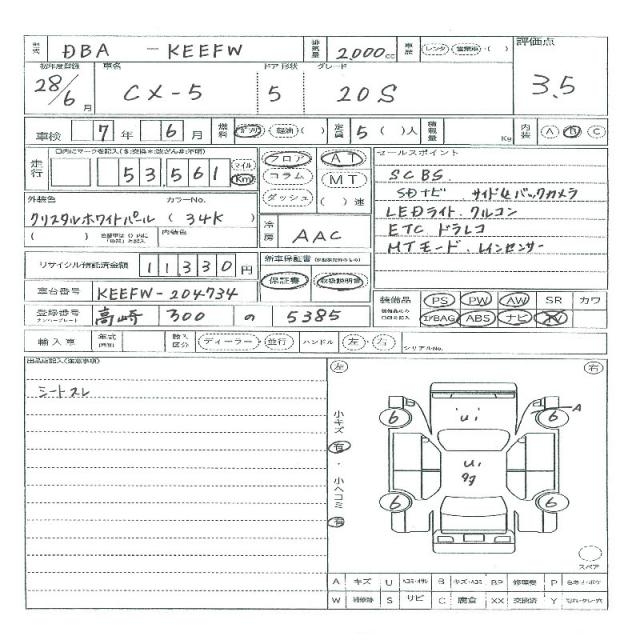 型式 DBA -KEEFW 排気量 2,000cc 車歴 レンタ・営業車・( ) 評価点
初年度登録 車名 ドア 形状 グレード
28/6月 CX-5 5 20S 3.5
車検 7年 6月 燃料 ガソリン 軽油 ( ) 定員 5( )人 積載量 Kg 内装 A B C
走行 53,561 マイル Km フロア コラム ダッシュ AT MT ( )速
セールスポイント
SCBS.
SDナビ サイド&バックカメラ
LEDライト. クルコン
ETC ドラレコ
MTモード. レインセンサー
外装色 カラーNo.
クリスタルホワイトパール ( 34K )
内装色
冷房 AAC
リサイクル預託済金額 11330円
新車保証書
保証書 取扱説明書
車台番号 KEEFW-204734
装備品 PS PW AW SR カワ
エアBAG ABS ナビ TV
登録番号 ナンバープレート 高崎 300 の 5385
輸入車 年式 輸入区分 ディーラー・並行 ハンドル 左・右 シリアルNo.
シートスレ
左 右
小キズ 有・小ヘコミ 有
6 6 A
ui
ui
6 6
スペア
A キズ U B キズ・ヘコミ BP 修理要 P
W 補修跡 S サビ C 腐食 XX 交換済 Y